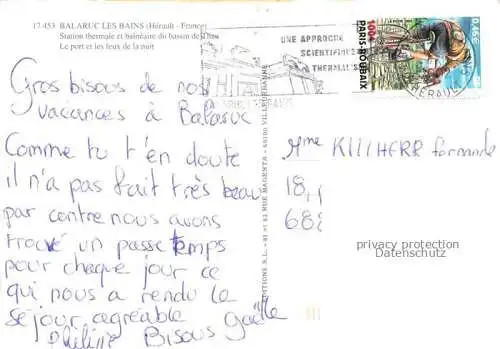 17-453 BALARUC LES BAINS (Hérault - France)
Station thermale et balnéaire du bassin de Thau
Le port et les feux de la nuit
UNE APPROCHE
SCIENTIFIQUE
THERMALISME
0,46€
100e
PARIS-ROUBAIX
HERAULT
Gros bisous de nos
vacances à Balaruc
Comme tu t'en doute
il n'a pas fait très beau
par contre nous avons
trouvé un passe temps
pour chaque jour ce
qui nous a rendu le
séjour agréable
Philippe Bisous Gaëlle
EDITIONS S.L. - 91 et 93 RUE MAGENTA - 69100 VILLEURBANNE
Mme KIHHERR Fernande
18,
688
privacy protection
Datenschutz